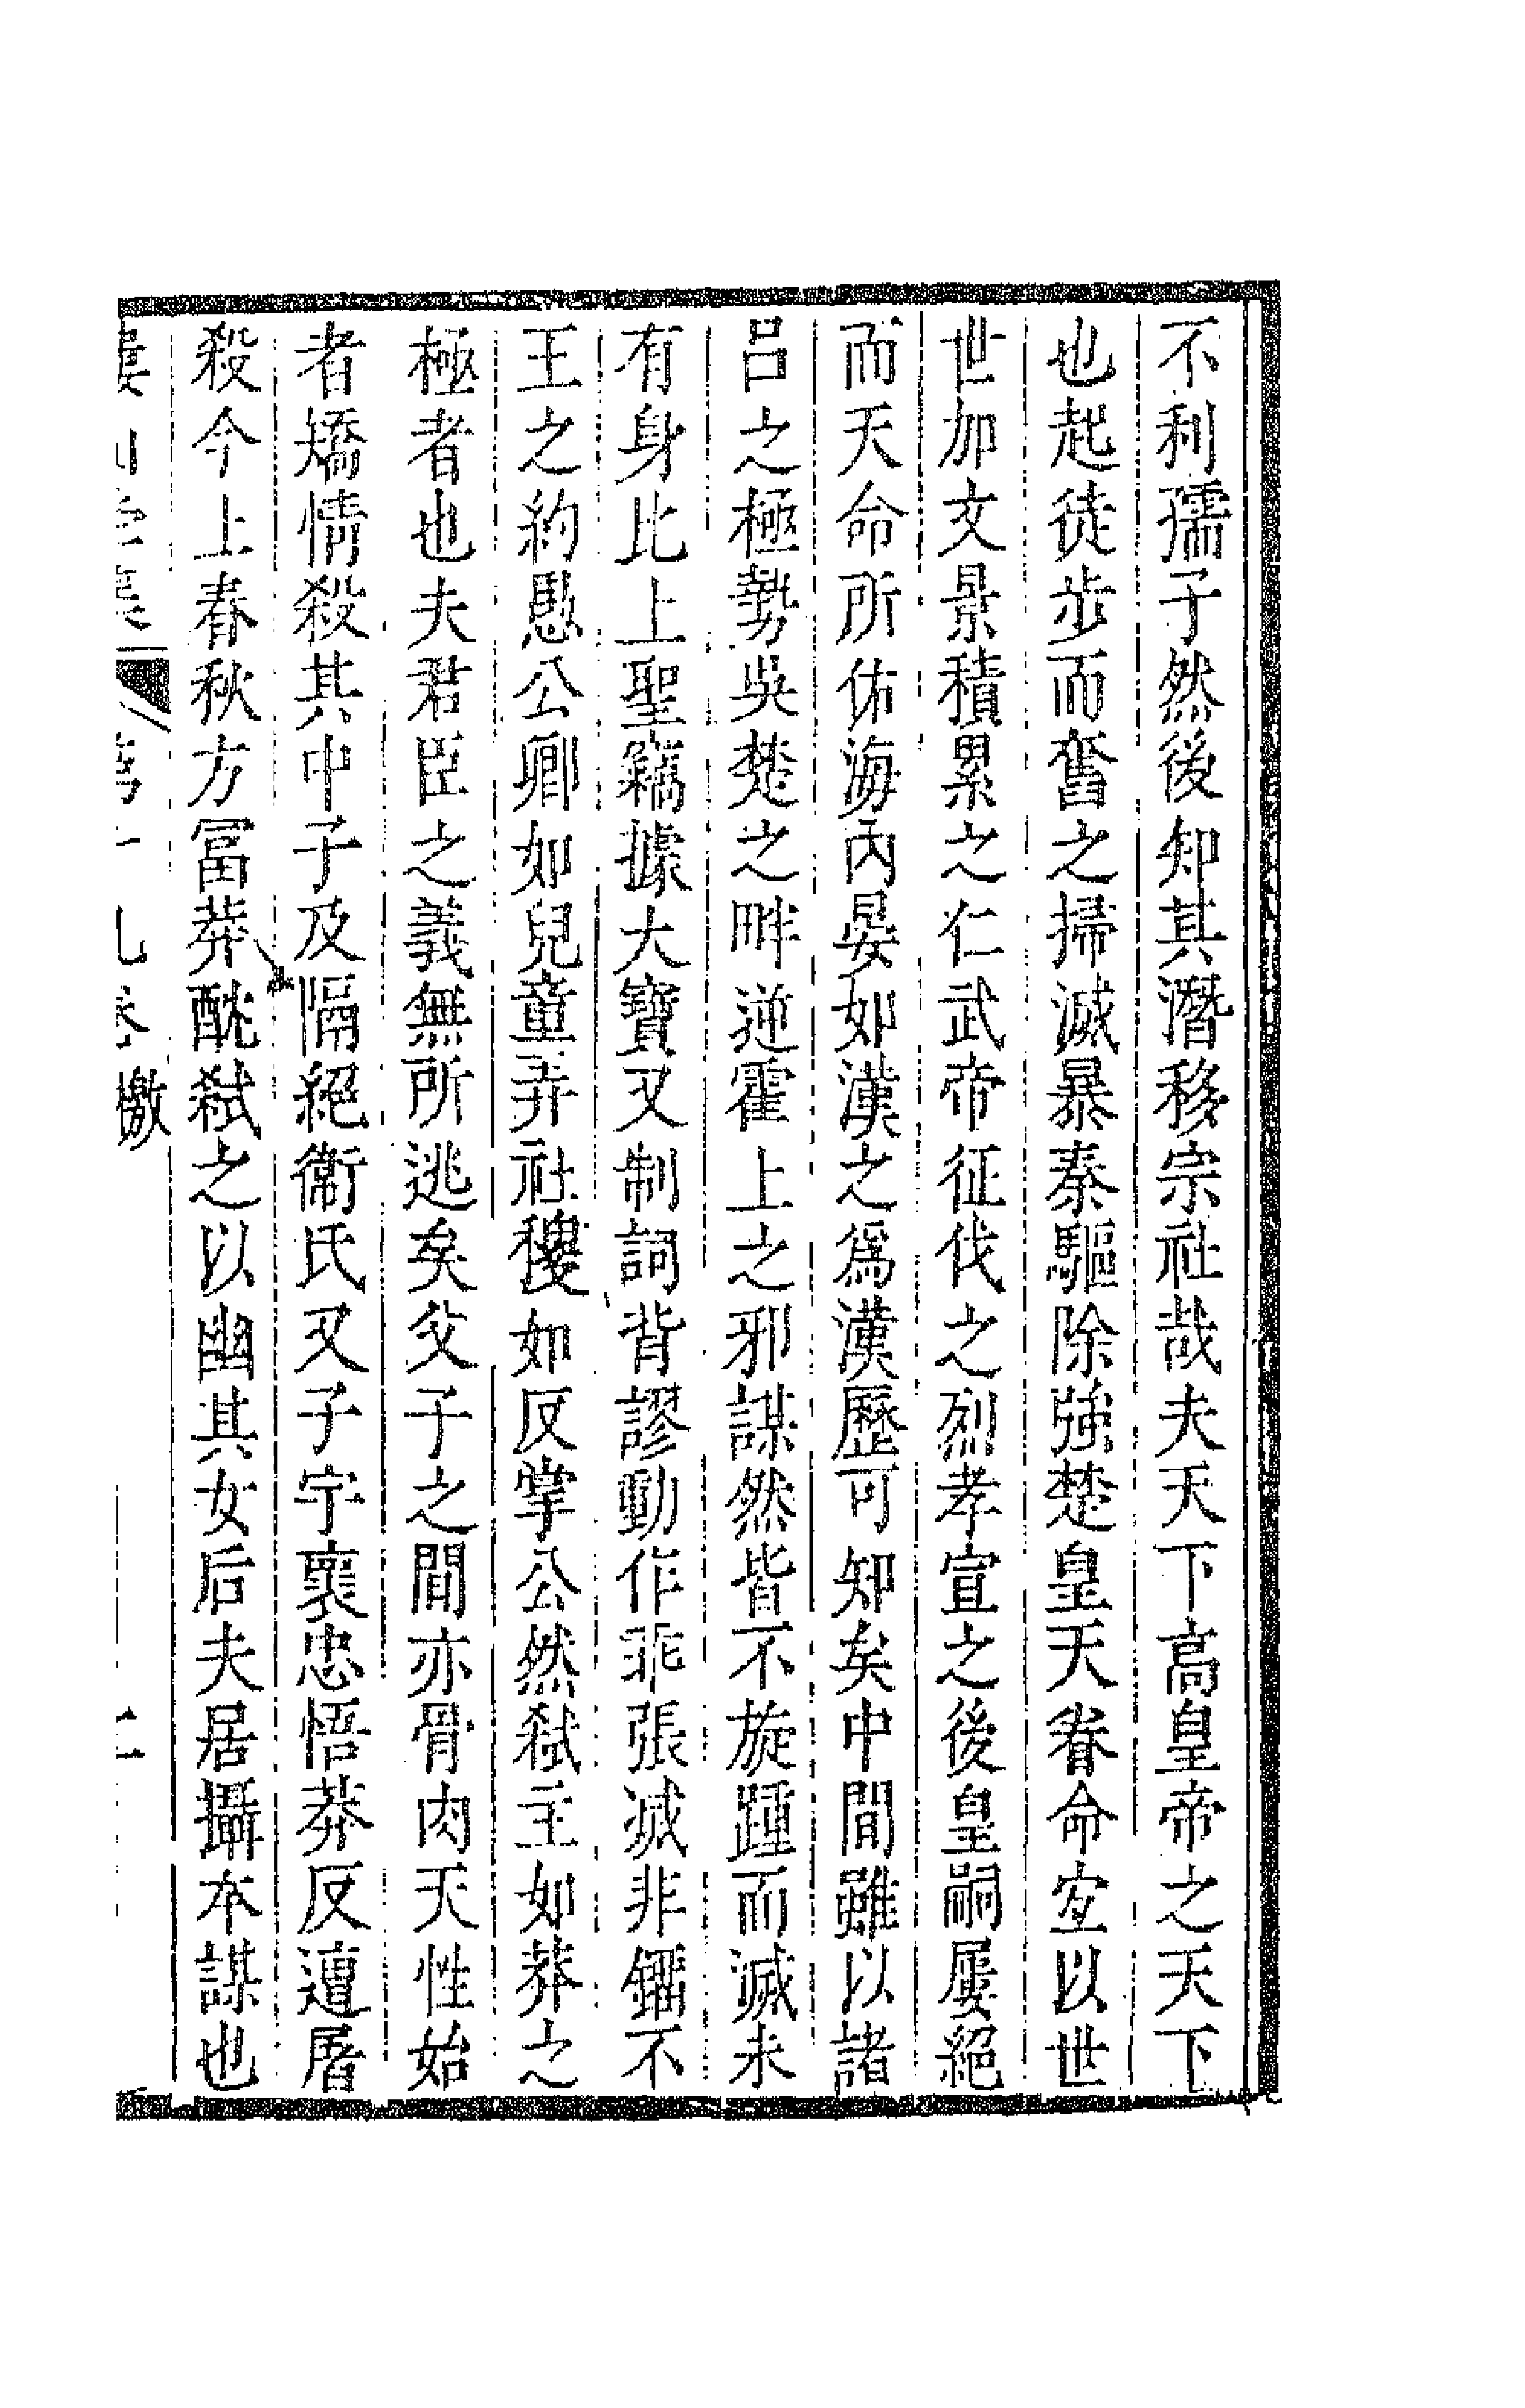 不利孺子然後知其潛移宗社哉夫天下高皇帝之天下
也起徒步而奮之掃滅暴秦驅除強楚皇天眷命宐以世
世加文景積累之仁武帝征伐之烈孝宣之後皇嗣屢絕
而天命所佑海內晏如漢之爲漢歷可知矣中間雖以諸
呂之極勢吳楚之畔逆霍上之邪謀然皆不旋踵而滅未
有身比上聖竊據大寶又制詞背謬動作乖張滅非鐂不
王之約愚公卿如兒童弄社稷如反掌公然弑主如莽之
極者也夫君臣之義無所逃矣父子之間亦骨肉天性始
者矯情殺其中子及隔絕衞氏又子宇裏忠悟莽反遭屠
殺今上春秋方冨莽酖弑之以幽其女后夫居攝本謀也
檄